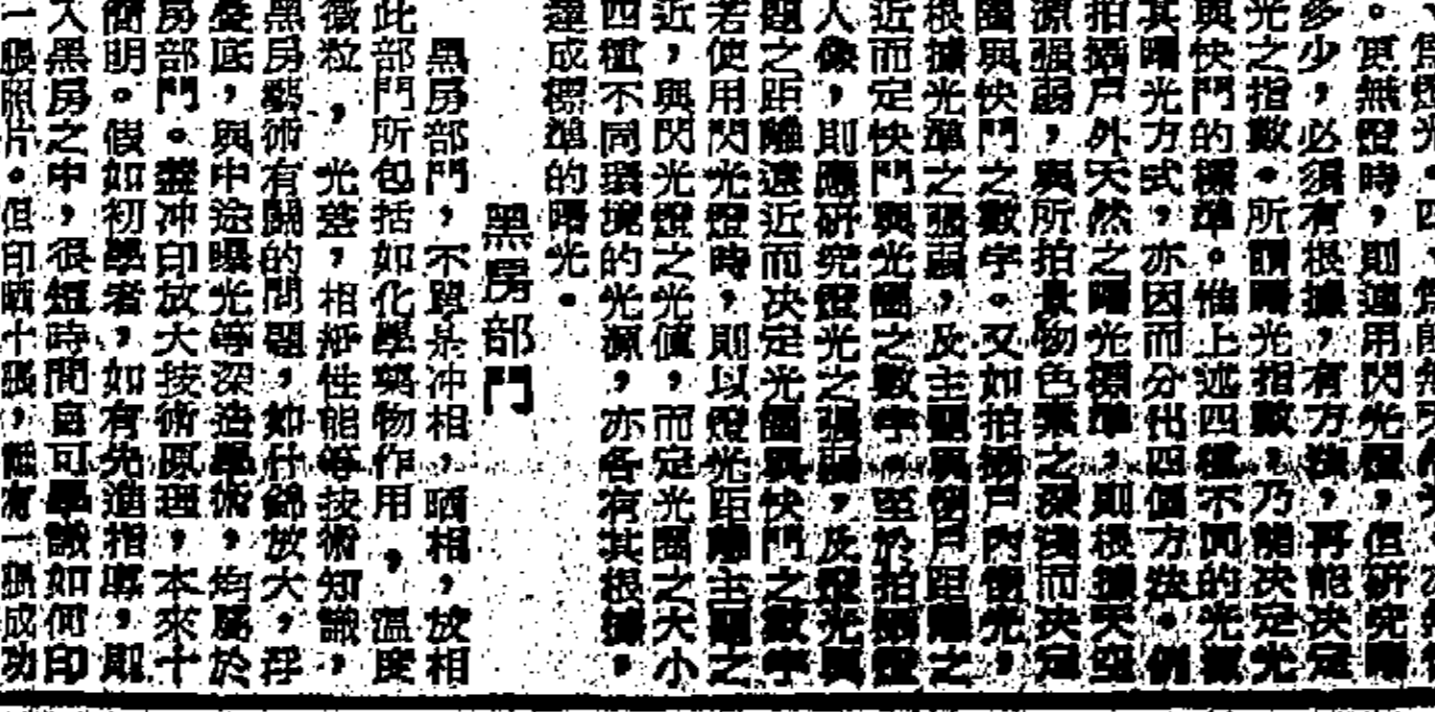 。更無燈時，則運用閃光燈，但研究曝
多少，必須有根據，有方法，再能決定
光之指數。所謂曝光指數，乃能決定光
與快門的標準。惟上述四種不同的光源
其曝光方式，亦因而分出四個方法。例
拍攝戶外天然之曝光標準，則根據天空
源强弱，與所拍景物色素之深淺而決定
圈與快門之數字。又如拍攝戶內燈光，
根據光源之强弱，反主題與燈戶距離之
近而定快門與光圈之數字。至於拍攝燈
人像，則應研究燈光之强弱，反燈光與
題之距離遠近而決定光圈與快門之數字
若使用閃光燈時，則以燈光距離主題之
近，與閃光燈之光值，而定光圈之大小
四種不同環境的光源，亦各有其根據，
達成標準的曙光。
黑房部門
黑房部門，不單是冲相，晒相，放相
此部門所包括如化學藥物作用，溫度
微粒，光差，相紙性能等技術知識，
黑房藝術有關的問題，如什錦放大，浮
疊底，與中途曝光等深造學術，均屬於
房部門。盡冲印放大技術原理，本來十
簡明。假如初學者，如有先進指導，則
入黑房之中，很短時間旣可學識如何印
一張照片。但印晒十張，難有一張成功